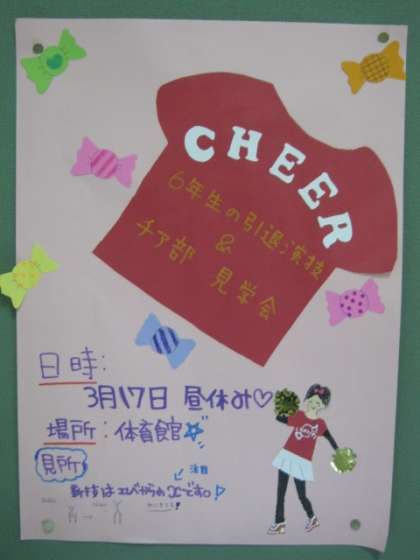 CHEER
6年生の引退演技
&
チア部 見学会
日時:
3月17日 昼休み♡
場所:体育館☆
見所
注目
新技はエバからのXです。!